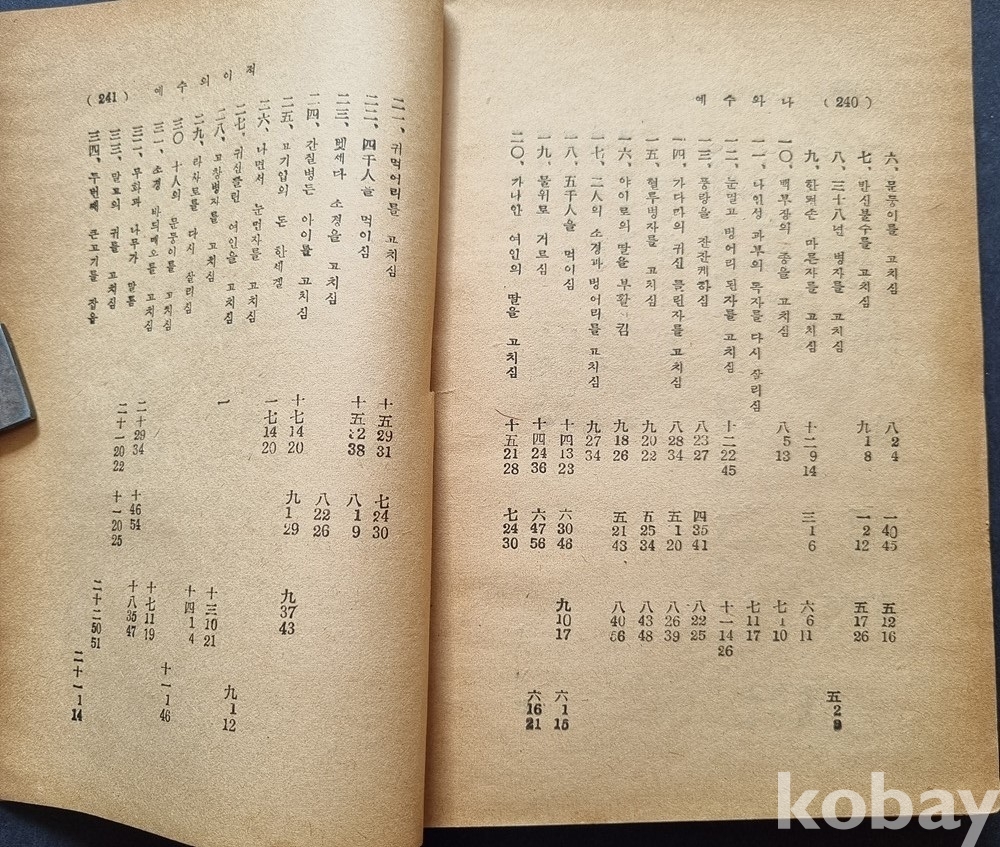 예 수 와 나 (240)
六、문둥이를 고치심 八 2 4 一 40 45 五 12 16
七、반신불수를 고치심 九 1 8 一 2 12 五 17 26
八、三十八년 병자를 고치심 五 2 9
九、한편손 마른자를 고치심 十二 9 14 三 1 6 六 6 11
一〇、백부장의 종을 고치심 八 5 13 七 1 10
一一、나인성 과부의 독자를 다시 살리심 七 11 17
一二、눈멀고 벙어리 된자를 고치심 十二 22 45 十一 14 26
一三、풍랑을 잔잔케하심 八 23 27 四 35 41 八 22 25
一四、가다라의 귀신 들린자를 고치심 八 28 34 五 1 20 八 26 39
一五、혈루병자를 고치심 九 20 22 五 25 34 八 43 48
一六、야이로의 딸을 부활 김 九 18 26 五 21 43 八 40 56
一七、二人의 소경과 벙어리를 고치심 九 27 34
一八、五千人을 먹이심 十四 13 23 六 30 46 九 10 17 六 1 15
一九、물위로 거르심 十四 24 36 六 47 56 六 16 21
二〇、가나안 여인의 딸을 고치심 十五 21 28 七 24 30
(241) 예 수 의 이 적
二一、귀먹어리를 고치심 十五 29 31 七 24 30
二二、四千人을 먹이심 十五 32 38 八 1 9
二三、벳세다 소경을 고치심 八 22 26
二四、간질병든 아이를 고치심 十七 14 20 九 1 29 九 37 43
二五、고기입의 돈 한세겔 一七 14 20
二六、나면서 눈먼자를 고치심 一 九 1 12
二七、귀신들린 여인을 고치심 十三 10 21
二八、고창병자를 고치심 十四 1 4
二九、라사로를 다시 살리심 十一 1 46
三〇 十人의 문둥이를 고치심 十七 11 19
三一、소경 바듸매오를 고치심 二十 29 34 十 46 54 十八 35 47
三二、무화과 나무가 말름 二十一 20 22 十一 20 25
三三、말고의 귀를 고치심 二十二 50 51
三四、두번째 큰고기를 잡음 二十一 1 14
kobay